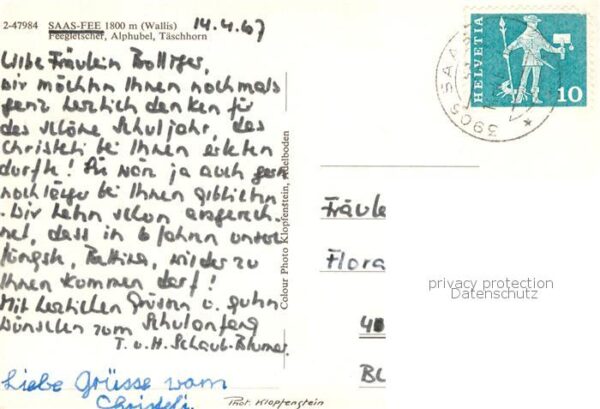 2-47984 SAAS-FEE 1800 m (Wallis)
Feegletscher, Alphubel, Täschhorn
14.4.67
Liebe Fräulein Bolliger,
wir möchten Ihnen nochmals
ganz herzlich danken für
das schöne Schuljahr, das
Christeli bei Ihnen erleben
durfte! Sie wär ja auch gern
noch länger bei Ihnen geblieben
. Wir haben schon ausgerech-
net, dass in 6 Jahren unser
Jüngste, Bettina, wieder zu
Ihnen kommen darf!
Mit herzlichen Grüssen u. guten
Wünschen zum Schulanfang
T. u. H. Schaub-Blumer.
Liebe Grüsse vom
Christeli
Colour Photo Klopfenstein, Adelboden
Phot. Klopfenstein
HELVETIA
10
3906 SAA
Fräule
Flora
4
BL
privacy protection
Datenschutz